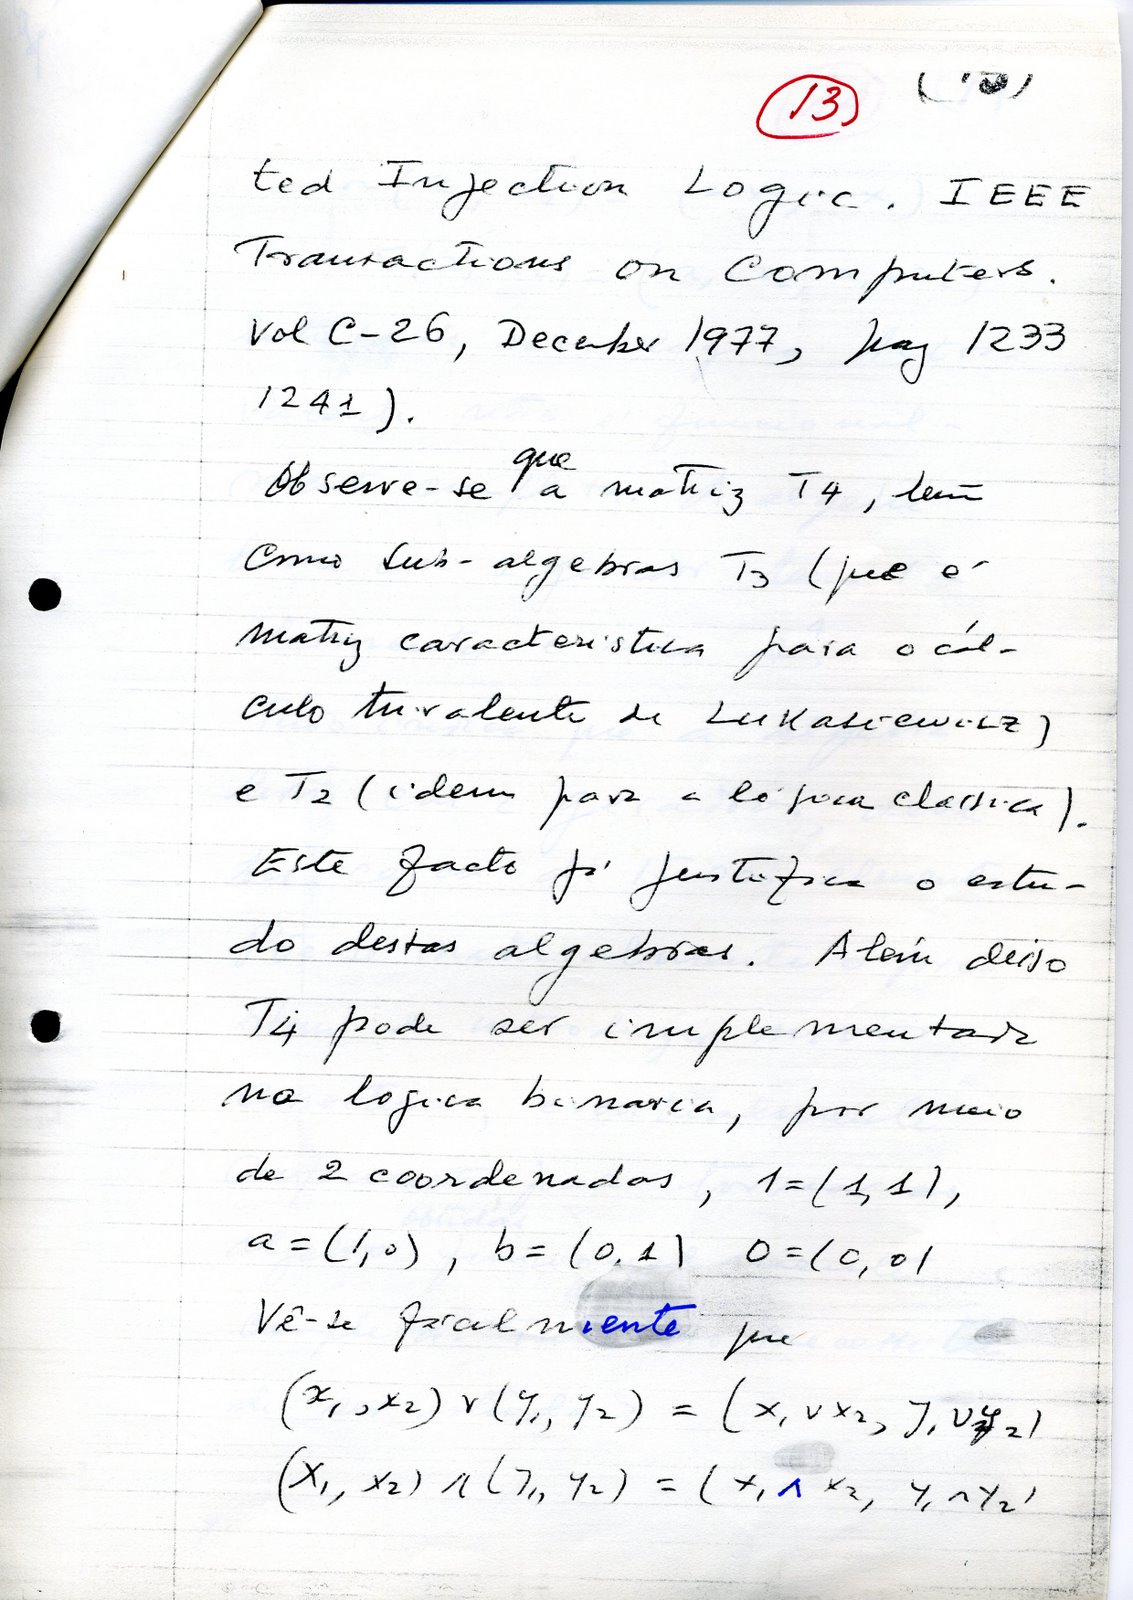 13
ted Injection Logic. IEEE
Transactions on Computers.
Vol C-26, December 1977, pag 1233
1241).
Observe-se que a matriz T4, tem
como sub-algebras T3 (que é
matriz caracteristica para o cál-
culo trivalente de LUKASIEWICZ)
e T2 (idem para a lógica classica).
Este facto já justifica o estu-
do destas algebras. Além disso
T4 pode ser implementada
na logica binaria, por meio
de 2 coordenadas, 1=(1,1),
a=(1,0), b=(0,1) 0=(0,0)
Vê-se facilmente que
(x1,x2) ∨ (y1, y2) = (x1 ∨ x2, y1 ∨ y2)
(x1, x2) ∧ (y1, y2) = (x1 ∧ x2, y1 ∧ y2)